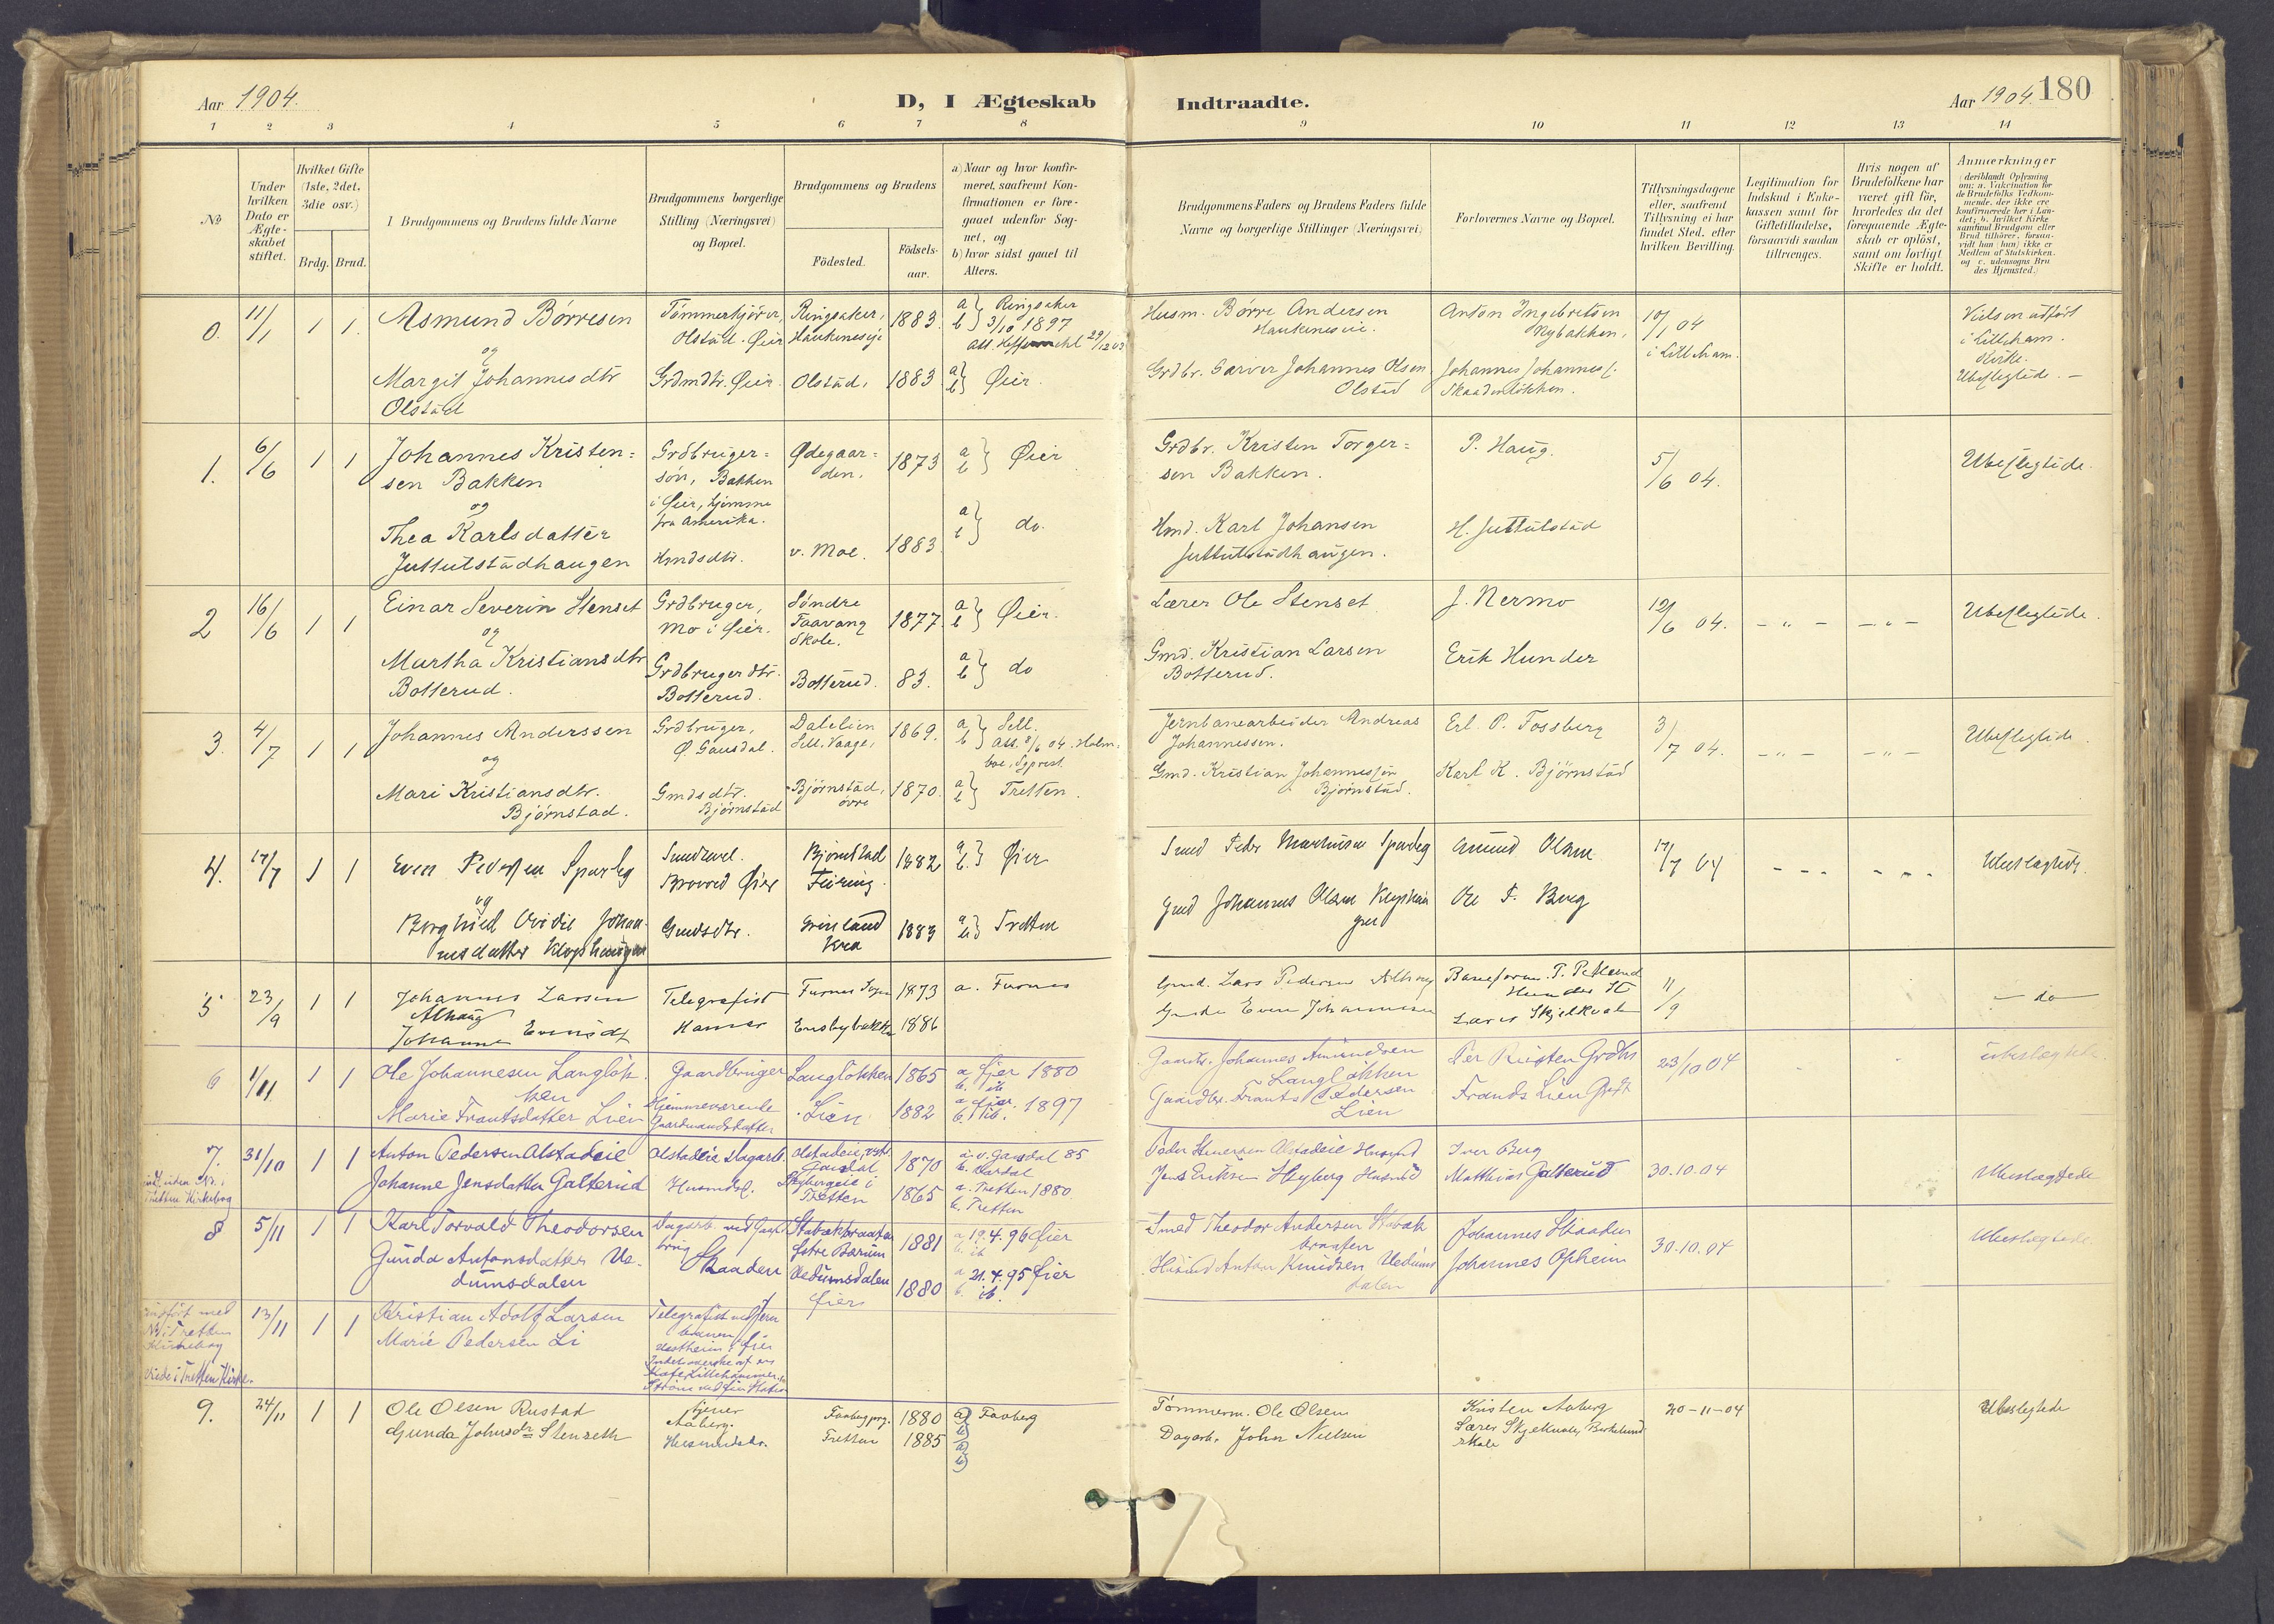 Aar 1904.
D, I Ægteskab
Indtraadte.
Aar 1904.
180
1 2 3 4 5 6 7 8
9 10 11 12 13 14
№
Under hvilken Dato er Ægteskabet stiftet.
Hvilket Gifte (1ste, 2det, 3die osv.)
Brdg. Brud.
I Brudgommens og Brudens fulde Navne
Brudgommens borgerlige Stilling (Næringsvei) og Bopæl.
Brudgommens og Brudens
Födested.
Födsels-aar.
a) Naar og hvor konfirmeret, saafremt Konfirmationen er foregaaet udenfor Sognet, og
b) hvor sidst gaaet til Alters.
Brudgommens Faders og Brudens Faders fulde Navne og borgerlige Stillinger (Næringsvei)
Forlovernes Navne og Bopæl.
Tillysningsdagene eller, saafremt Tillysning ei har fundet Sted, efter hvilken Bevilling.
Legitimation for Indskud i Enkekassen samt for Giftetilladelse, forsaavidt saadan tiltrænges.
Hvis nogen af Brudefolkene har været gift för, hvorledes da det foregaaende Ægteskab er oplöst, samt om lovligt Skifte er holdt.
Anmærkninger (deriblandt Oplysning om: a. Vakcination for de Brudefolks Vedkommende, der ikke ere konfirmerede her i Landet; b. hvilket Kirkesamfund Brudgom eller Brud tilhörer, forsaavidt han (hun) ikke er Medlem af Statskirken, og c. udensogns Brudes Hjemsted.)
0. 11/1 1 1. Asmund Börresen
Tømmerkjörer, Olstad. Øier
Ringsaker, Haukeneseje
1883.
a b} Ringsaker 3/10 1897
Husm. Börre Andersen Haukeneseie.
Anton Ingebretsen Nybakken,
10/1 04 i Lilleham.
Vielsen udfört i Lilleham. Kirke. Ubeslegtede. -
og
Margit Johannesdtr Olstad
Grdmdtr. Øier
Olstad,
1883
a b} Øier.
Grdbr. Garver Johannes Olsen Olstad
Johannes Johannes[s]. Skaadenlökken.
1. 6/6 1 1 Johannes Kristen=
sen Bakken
Grdbruger=
sön, Bakken
i Øier, hjemme
fra Amerika.
Ødegaar=
den.
1873
a b} Øier
Grdbr. Kristen Torger=
sen Bakken.
P. Haug.
5/6 04.
Ubeslegtede.
og
Thea Karlsdatter
Juttulstadhaugen
Hmdsdtr.
v. Moe.
1883.
a b} do.
Hmd. Karl Johansen
Juttulstadhaugen.
H. Juttulstad
2 16/6 1 1 Einar Severin Stenset
Grdbruger,
Mo i Øier.
Söndre
Faavang
Skole.
1877
a b} Øier.
Lærer Ole Stenset
J. Nermo
12/6 04. - " - - " -
Ubeslegtede.
og
Martha Kristiansdtr
Botterud.
Grdbrugerdtr.
Botterud.
Botterud.
83.
a b} do
Gmd. Kristian Larsen
Botterud.
Erik Hunder
3. 4/7 1 1 Johannes Anderssen
Grdbruger,
Ø. Gausdal.
Dalelien
Sell. Vaage,
1869.
a b} Sell.
Att. 8/6 04. Holm-
boe, Sgprest.
Jernbanearbeider Andreas
Johannessen.
Erl. P. Fossberg
3/7 04. - " - - " -
Ubeslegtede.
og
Mari Kristiansdtr.
Björnstad.
Gmdsdtr.
Björnstad
Björnstad,
övre
1870.
a b} Tretten.
Gmd. Kristian Johannessön
Björnstad.
Karl K. Björnstad
4. 17/7 1 1 Even Pedersen Sparby
Bjørnstad
Feiring.
1882
a b.} Øier
Smed Peder
Amund Olsen
17/7 04 - - - - - -
Ubeslægtede.
og
Borghild Ovidie Johan-
nesdatter Klophaugen
Gmdsdtr.
1883
a b} Tretten
Gmd Johannes Olsen
Ole P. Berg
5 23/9 1 1 Johannes Larsen
Alhaug
Johanne Evensdt
Telegrafist
Hamar
Furnes Sogn
Ensbybakken
1873
1886
a. Furnes
Gmd. Lars Pedersen Alhaug
Gmd Even Johannesen
Baneform. P. Petlund
Hunder St
Lærer Skjelkvale
11/9
- do -
6 1/11 1 1 Ole Johannesen Langløk-
ken
Marie Frantsdatter Lien
Gaardbruger
Hjemmeværende
Gaardmandsdatter
Langløkken
Lien
1865
1882
a Øier 1880
b. ib
a Øier. 1897
b. ib.
Gaardbr. Johannes Amundsen
Langløkken
Gaardbr. Frants Pedersen
Lien
Per Rusten Grdbr
Frands Lien Grdbr
23/10 04
ubeslægtede
7. 31/10 1 1 Anton Pedersen Olstadeie
Johanne Jensdatter Galterud
indf. uden Nr. i
Tretten Kirkebog
Olstadeie Dagarb.
Husmdsd.
Olstadeie, vestr.
Gausdal
Stybergeie i
Tretten
1870
1865
a. v. Gausdal 85
a. Tretten 1880.
b. Tretten
Peder Simensen Olstadeie Husmd
Jens Eriksen Styberg Husmd
Iver Berg
Matthias Galterud
30.10.04
Ubeslægtede
8 5/11 1 1 Karl Torvald Theodorsen
Gunda Antonsdatter Ve-
dumsdalen
Dagarb. ved Gaard-
brug
Skaaden
Stabækbraaten
Østre Bærum
Vedumsdalen
Øier
1881
1880
a 19.4.96 Øier
b. ib
a 21.4.95 Øier
b. ib.
Smed Theodor Andersen Stabæk
braaten
Husmd Anton Knudsen Vedums
dalen
Johannes Skaaden
Johannes Opheim
30.10.04
Ubeslægtede
indført med
Nr i Tretten
Kirkebog
Viede i Tretten Kirke.
13/11 1 1 Kristian Adolf Larsen
Marie Pedersen Li
Telegrafist ved Jern
banen
Vestheim i Øier
Indehaverske af en
Kafe Lillehammer
9. 24/11 1 1 Ole Olsen Rustad
Gunda Johnsdtr Stenseth
tjener
Aaberg.
Husmandsdtr.
Faaberg prg.
Tretten
1880
1885
a) Faaberg
b)
a)
b)
Tømmerm. Ole Olsen
Dagarb. John Nielsen
Kristen Aaberg
Lærer Skjelkvale, Birkelund
skole
20-11-04
Ubeslegtede